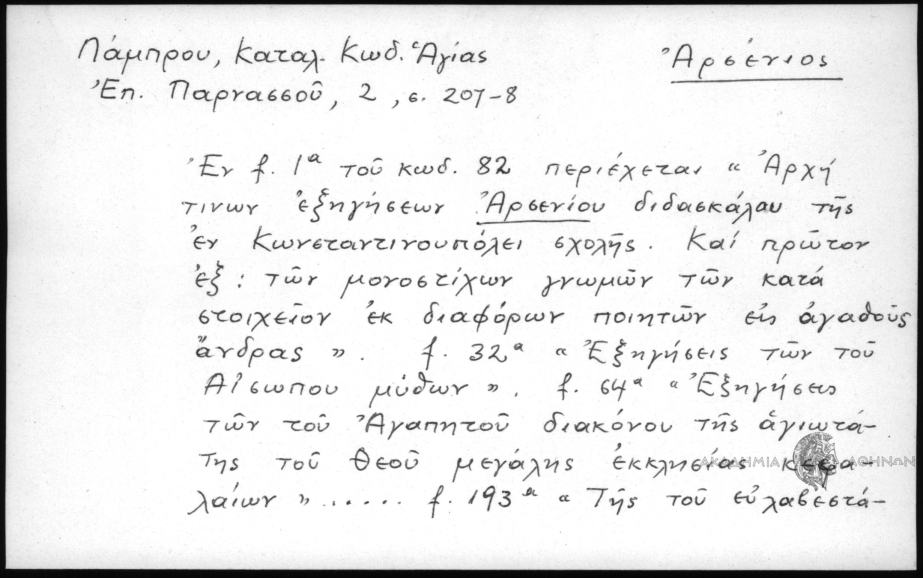 Λάμπρου, Καταλ. Κωδ. Ἁγίας
Ἀρσένιος
Ἐπ. Παρνασσοῦ, 2, σ. 207-8
Ἐν f. 1α τοῦ κωδ. 82 περιέχεται « Ἀρχή
τινων ἐξηγήσεων Ἀρσενίου διδασκάλου τῆς
ἐν Κωνσταντινουπόλει σχολῆς. Καί πρῶτον
ἐξ: τῶν μονοστίχων γνωμῶν τῶν κατά
στοιχεῖον ἐκ διαφόρων ποιητῶν εἰς ἀγαθούς
ἄνδρας ». f. 32α « Ἐξηγήσεις τῶν τοῦ
Αἰσώπου μύθων ». f. 64α « Ἐξηγήσεις
τῶν τοῦ Ἀγαπητοῦ διακόνου τῆς ἁγιωτά-
της τοῦ Θεοῦ μεγάλης ἐκκλησίας κεφα-
λαίων » ...... f. 193α « Τῆς τοῦ εὐλαβεστά-
ΑΚΑΔΗΜΙΑ ΑΘΗΝΩΝ